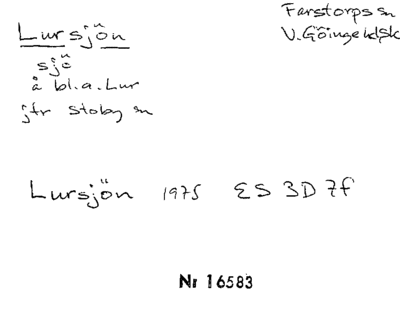 Lursjön
sjö
å bl.a. Lur
jfr Stoby sn
Farstorps sn
V. Göinge hd, Sk
Lursjön 1975 ES 3D 7f
Nr 16583